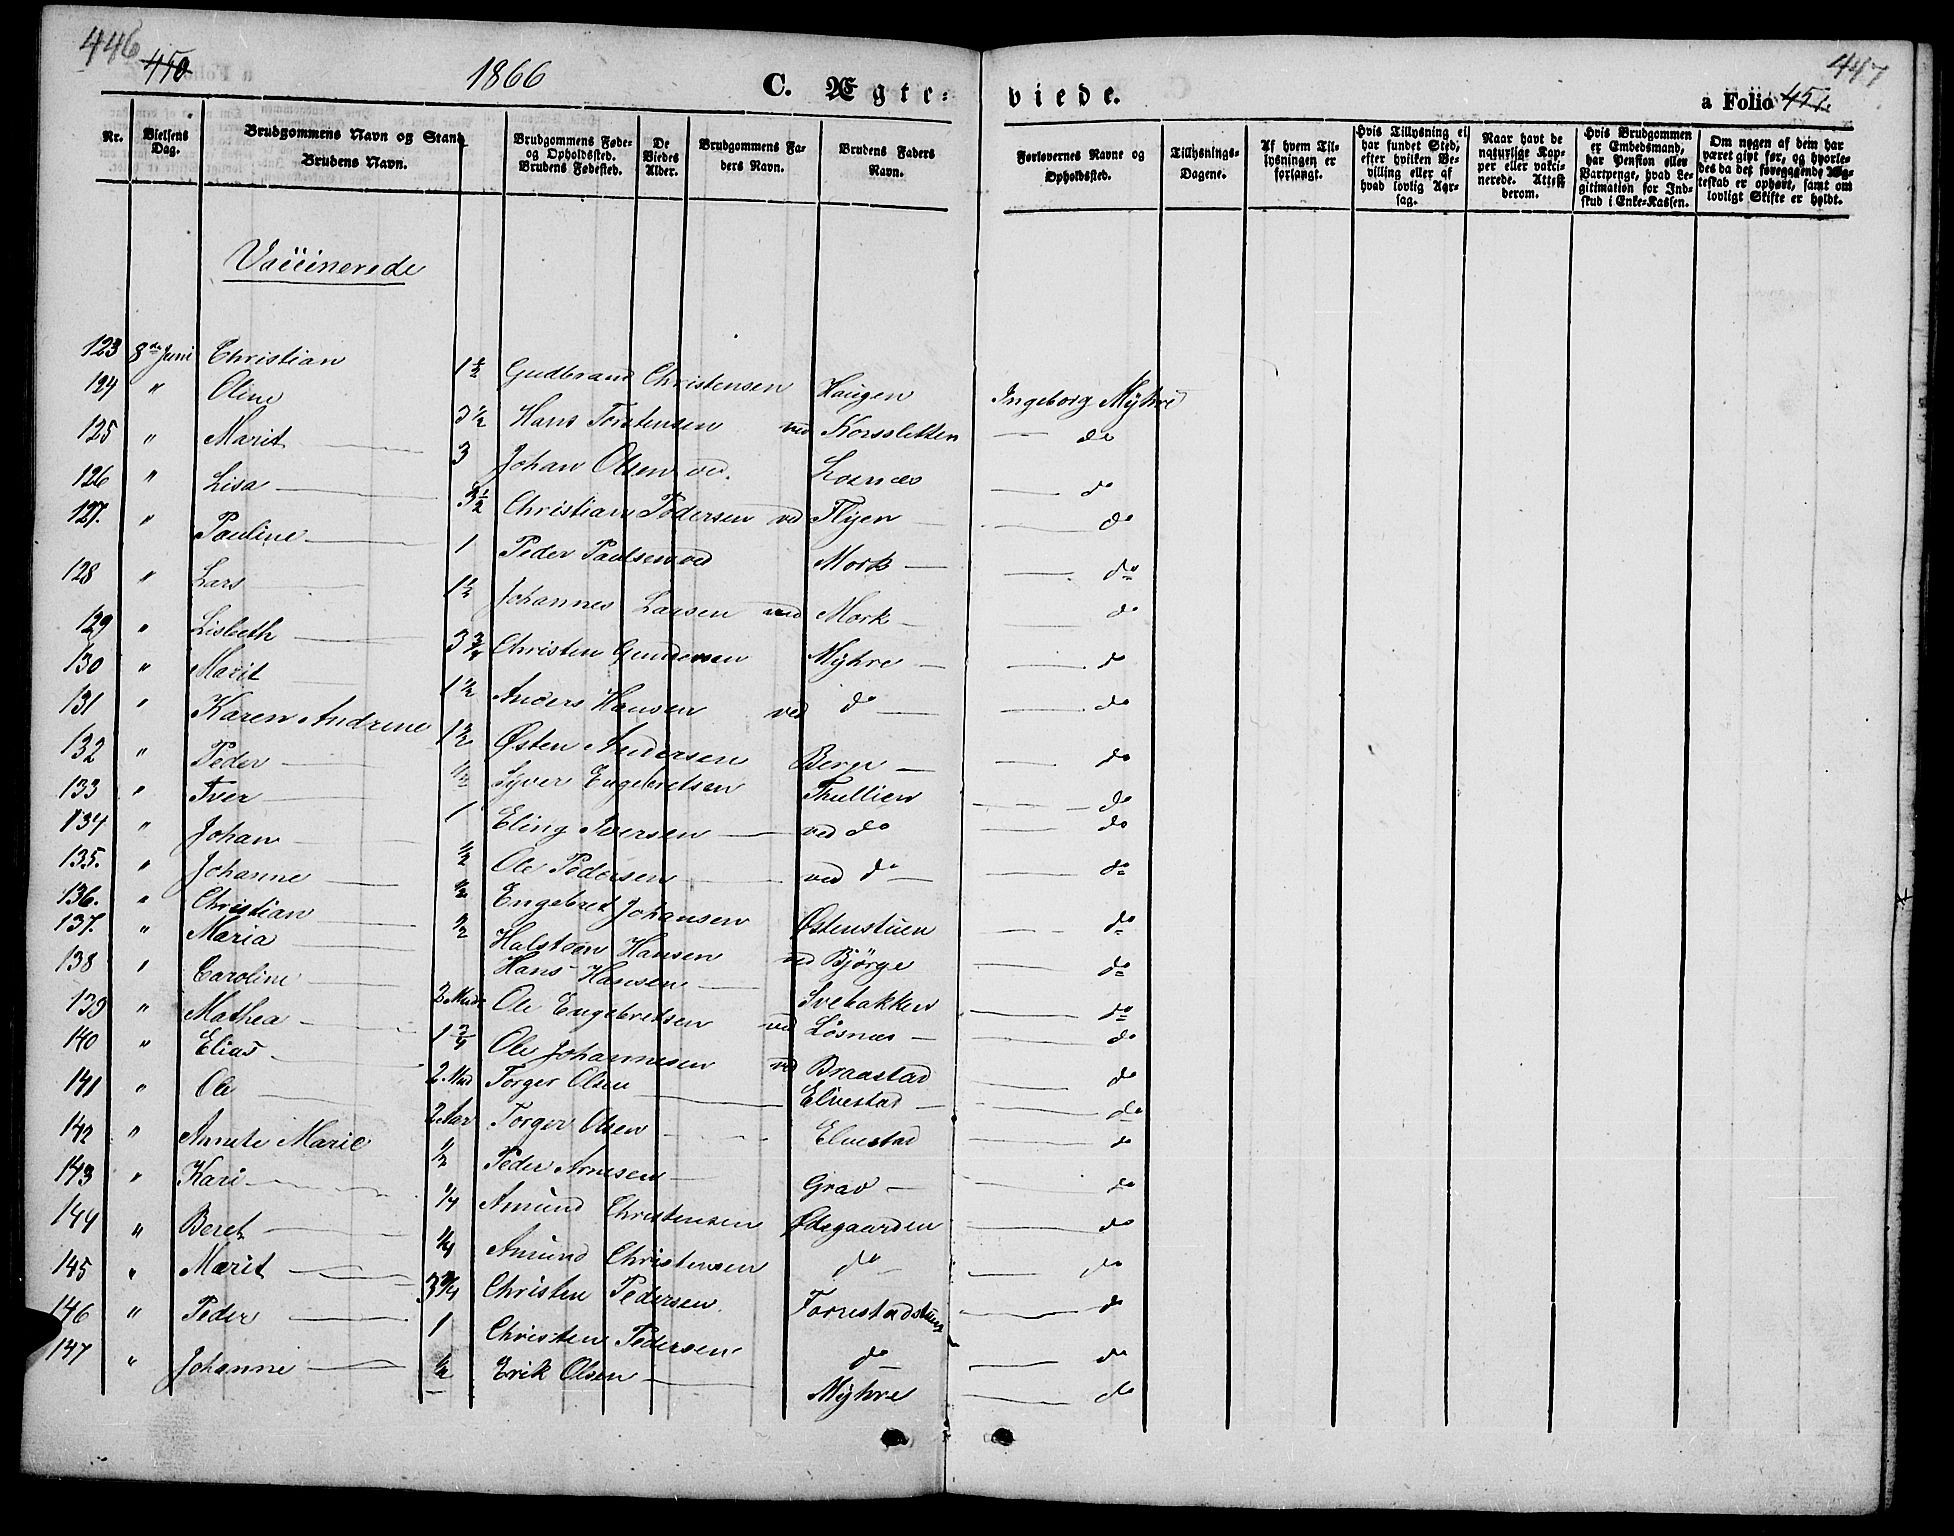 446 450 1866 C. Ægte-
viede. a Folio 451. 447
Nr.
Vielsens Dag.
Brudgommens Navn og Stand Brudens Navn.
Brudgommens Føde- og Opholdssted. Brudens Fødested.
De Viedes Alder.
Brudgommens Faders Navn.
Brudens Faders Navn.
Forlovernes Navne og Opholdssted.
Tillysnings-Dagene.
Af hvem Tillysningen er forlangt.
Hvis Tillysning ei har fundet Sted, efter hvilken Bevilling eller af hvad lovlig Aarsag.
Naar havt de naturlige Kopper eller vaccinerede. Attest derom.
Hvis Brudgommen er Embedsmand, har Pension eller Vartpenge, hvad Legitimation for Indskud i Enke-Kassen.
Om nogen af dem har været gift før, og hvorledes da det foregaaende Ægteskab er ophørt, samt om lovligt Skifte er holdt.
Vaccinerede
123 8de Juni Christian 1½ Gudbrand Christensen Haugen Ingeborg Myhre
124 " Oline 3½ Hans Torstensen ved Korssletten — do
125 " Marit — 3 Johan Olsen ved. Losnæs — do
126 " Lisa — 3½ Christian Pedersen ved Flyen — do
127. " Pauline — 1 Peder Paulsen ved Mork — — do
128 " Lars — 1½ Johannes Larsen ved Mork — — do
129 " Lisbeth — 3¾ Christen Gundersen Myhre — — do
130 " Marit — 1½ Anders Hansen ved do — — do
131 " Karen Andrine 1½ Østen Andersen Berge — — do
132 " Peder — ½ Syver Engebretsen Thullien — do
133 " Iver — 1 Eling Iversen — ved do — do
134 " Johan — ½ Ole Pedersen — ved do — — do
135. " Johanne — ½ Engebret Johansen Østenstuen — do
136. " Christian — ½ Halsteen Hansen ved Bjørge — do
137. " Maria — Hans Hansen — Svebakken — do
138 " Caroline — 2 Mnd. Ole Engebretsen ved Løsnæs — — do
139 " Mathea — 1¾ Ole Johannesen ved Braastad — do
140 " Elias — 2 Mnd Torger Olsen — Elvestad — — do
141 " Ole — 2 Aar Torger Olsen — Elvestad — do
142 " Annete Marie ½ Peder Arnesen — Grav — — do
143 " Kari — ¼ Amund Christensen Ødegaarden — do
144 " Beret — ¼ Amund Christensen do — — do
145 " Marit — 3¾ Christen Pedersen. — do
146 " Peder — 1 Christen Pedersen do — — do
147 " Johanne — ½ Erik Olsen — Myhre — do